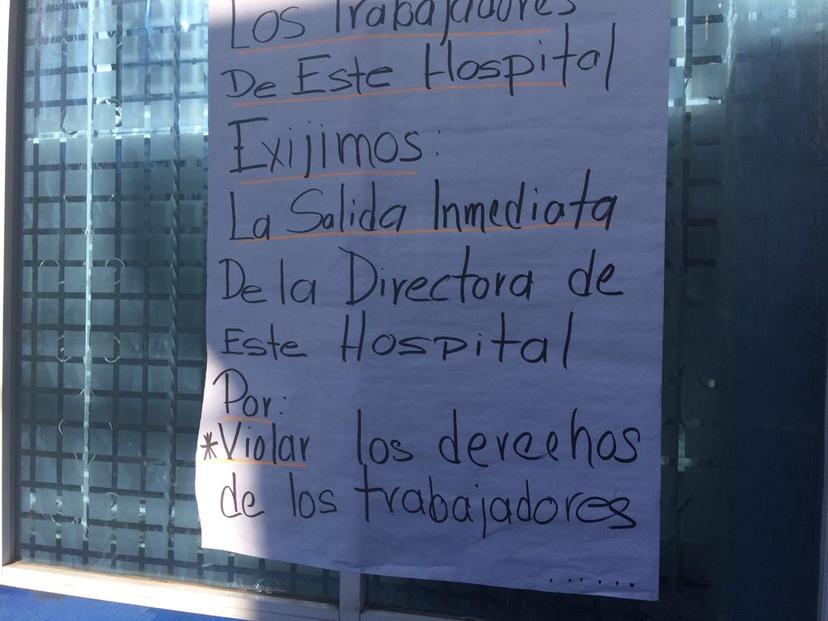 Los Trabajadores
De Este Hospital
Exijimos:
La Salida Inmediata
De la Directora de
Este Hospital
Por:
*Violar los derechos
de los trabajadores
......